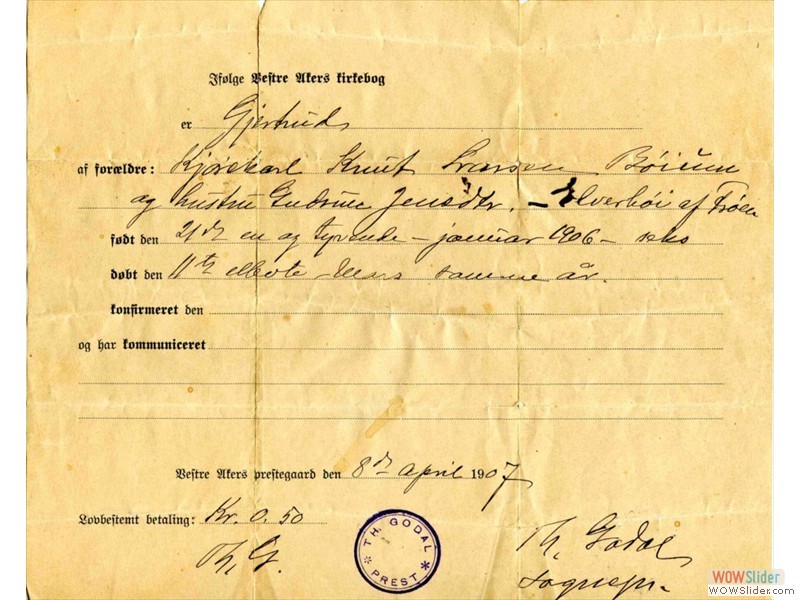 Ifølge Vestre Akers kirkebog
er Gjertrud
af forældre: Kjørekarl Knut Larsen Böium
og hustru Gudrun Jensdtr. – Elverhöi af Fröen
født den 21de en og tyvende – januar 1906 – seks
døbt den 11te ellevte mars samme år.
konfirmeret den
og har kommuniceret
Vestre Akers prestegaard den 8de april 1907
Lovbestemt betaling: Kr. 0.50
Th. G.
TH. GODAL
PREST
Th. Godal
sognepr.
WOWSlider
WOWSlider.com